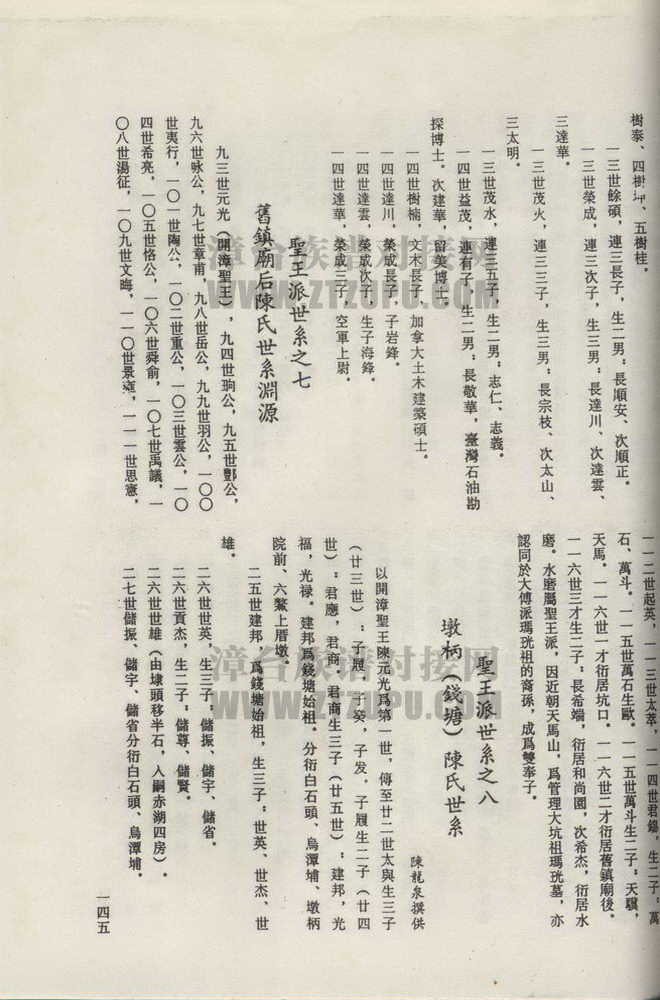 樹泰、四樹坤、五樹桂。
一三世餘碩，連三長子，生二男：長順安、次順正。
一三世榮成，連三次子，生三男：長達川、次達雲、
三達華。
一三世茂火，連三三子，生三男：長宗枝、次太山、
三太明。
一三世茂水，連三五子，生二男：志仁、志義。
一四世益茂，連有子，生二男：長敬華，臺灣石油勘
探博士。次建華，留美博士。
一四世樹楠，文木長子，加拿大土木建築碩士。
一四世達川，榮成長子，子岩鋒。
一四世達雲，榮成次子，生子海鋒。
一四世達華，榮成三子，空軍上尉。
聖王派世系之七
舊鎮廟后陳氏世系淵源
九三世元光（開漳聖王），九四世珦公，九五世酆公，
九六世咏公，九七世章甫，九八世岳公，九九世羽公，一〇〇
世夷行，一〇一世陶公，一〇二世重公，一〇三世雲公，一〇
四世希亮，一〇五世恪公，一〇六世舜俞，一〇七世禹議，一
〇八世湯征，一〇九世文晦，一一〇世景雍，一一一世思憲，
一一二世起英，一一三世太萃，一一四世君錫，生二子：萬
石、萬斗。一一五世萬石生歐。一一五世萬斗生二子：天驥，
天馬。一一六世一才衍居坑口。一一六世二才衍居舊鎮廟後。
一一六世三才生二子：長希端，衍居和尚園，次希杰，衍居水
磨。水磨屬聖王派，因近朝天馬山，爲管理大坑祖瑪珖墓，亦
認同於大傅派瑪珖祖的裔孫，成爲雙奉子。
聖王派世系之八
墩柄（錢塘）陳氏世系
陳龍泉撰供
以開漳聖王陳元光爲第一世，傳至廿二世太與生三子
（廿三世）：子履，子癸，子发。子履生二子（廿四
世）：君應，君商。君商生三子（廿五世）：建邦，光
福，光禄。建邦爲錢塘始祖。分衍白石頭、烏潭埔、墩柄
院前、六鰲上厝墩。
二五世建邦，爲錢塘始祖，生三子：世英、世杰、世
雄。
二六世世英，生三子：儲振、儲宇、儲省。
二六世貢杰，生二子：儲尊、儲賢。
二六世世雄（由埭頭移半石，入嗣赤湖四房）。
二七世儲振、儲宇、儲省分衍白石頭、烏潭埔。
一四五
漳台族谱对接网
WWW.ZTZUPU.COM
漳台族谱对接网
WWW.ZTZUPU.COM